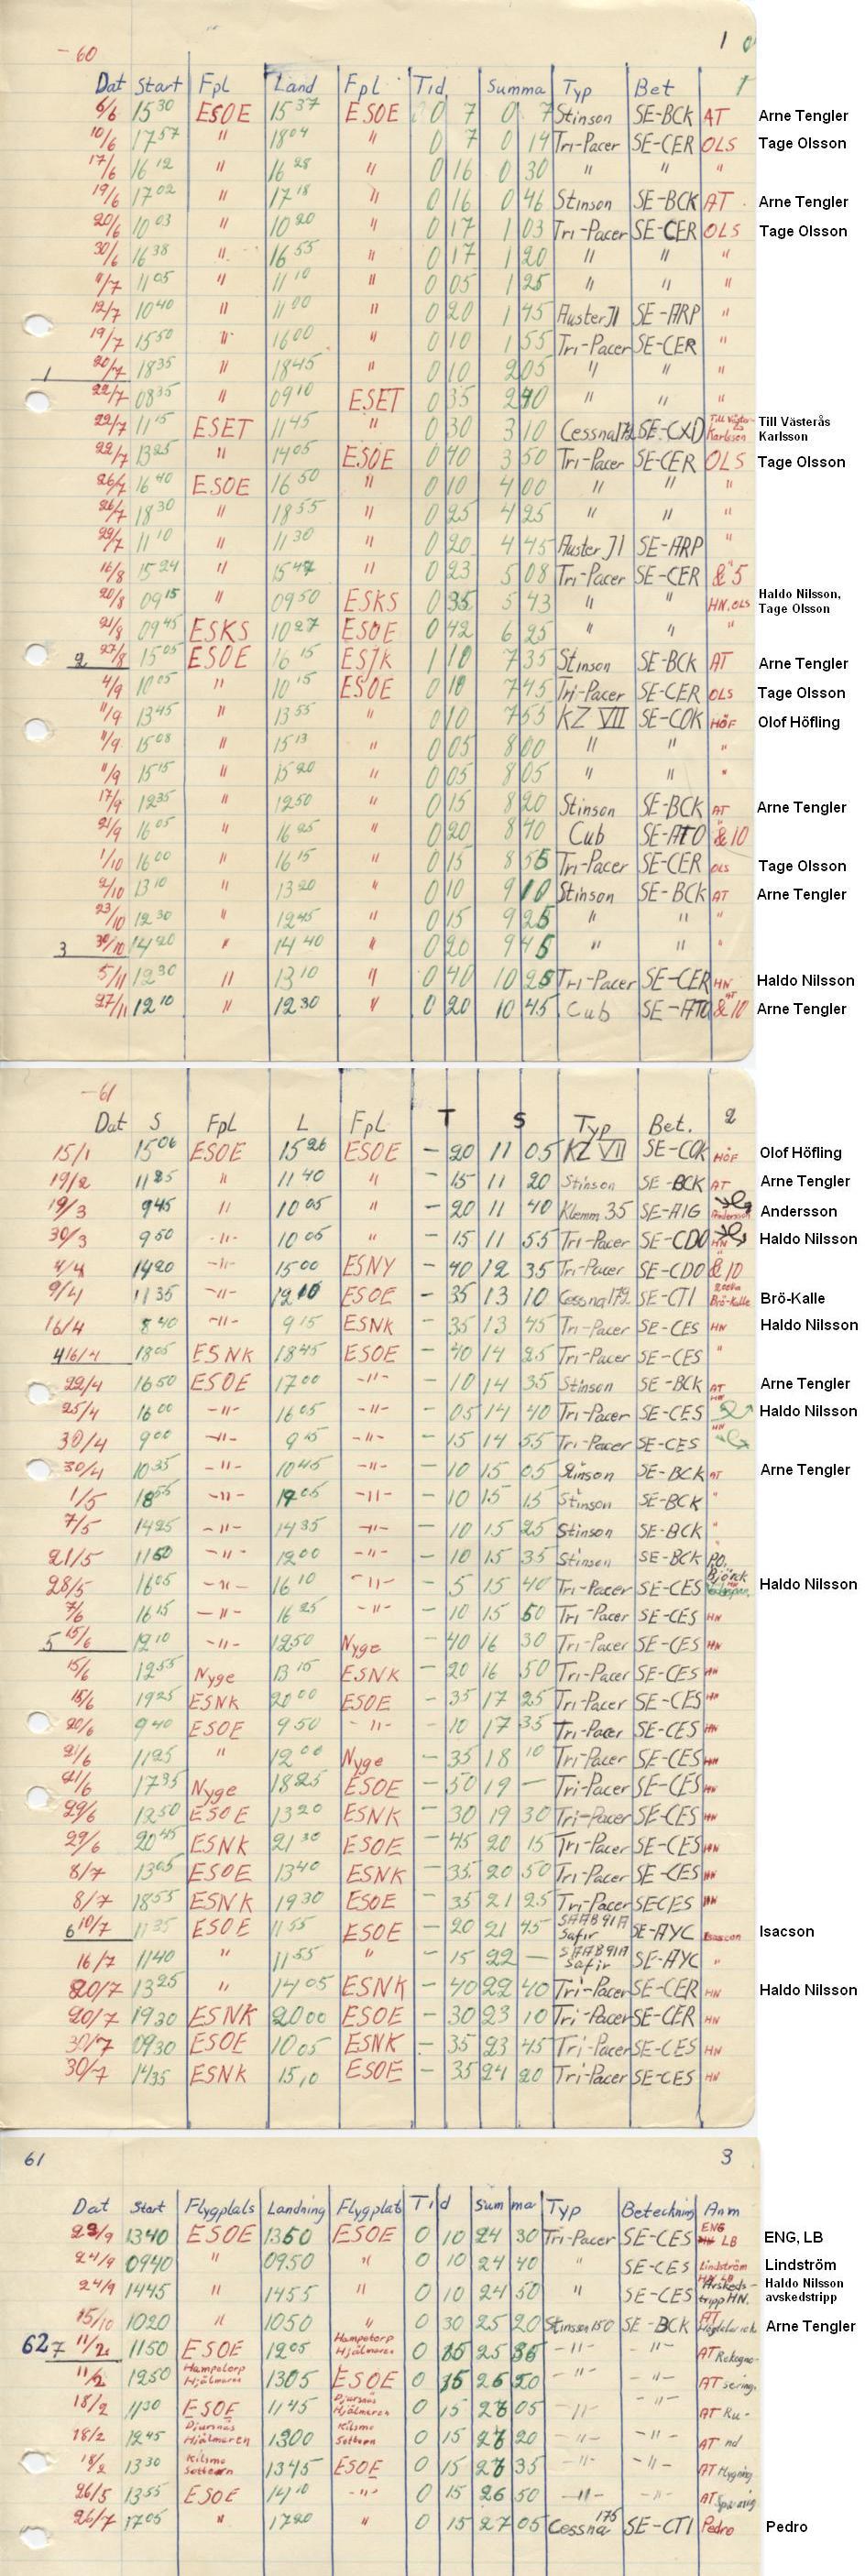 -60
1
Dat Start Fpl Land Fpl Tid Summa Typ Bet 1
6/6 15 30 ESOE 15 37 ESOE 0 7 0 7 Stinson SE-BCK AT Arne Tengler
10/6 17 57 " 18 04 " 0 7 0 14 Tri-Pacer SE-CER OLS Tage Olsson
17/6 16 12 " 16 28 " 0 16 0 30 " " "
19/6 17 02 " 17 18 " 0 16 0 46 Stinson SE-BCK AT Arne Tengler
20/6 10 03 " 10 20 " 0 17 1 03 Tri-Pacer SE-CER OLS Tage Olsson
30/6 16 38 " 16 55 " 0 17 1 20 " " "
11/7 11 05 " 11 10 " 0 05 1 25 " " "
12/7 10 40 " 11 00 " 0 20 1 45 Auster J1 SE-ARP "
19/7 15 50 " 16 00 " 0 10 1 55 Tri-Pacer SE-CER "
1 20/7 18 35 " 18 45 " 0 10 2 05 " " "
22/7 08 35 " 09 10 ESET 0 35 2 40 " " "
22/7 11 15 ESET 11 45 " 0 30 3 10 Cessna 172 SE-CXD Till Västerås Karlsson Till Västerås Karlsson
22/7 13 25 " 14 05 ESOE 0 40 3 50 Tri-Pacer SE-CER OLS Tage Olsson
26/7 16 40 ESOE 16 50 " 0 10 4 00 " " "
26/7 18 30 " 18 55 " 0 25 4 25 " " "
29/7 11 10 " 11 30 " 0 20 4 45 Auster J1 SE-ARP "
16/8 15 24 " 15 47 " 0 23 5 08 Tri-Pacer SE-CER " & 5
20/8 09 15 " 09 50 ESKS 0 35 5 43 " " HN, OLS Haldo Nilsson, Tage Olsson
21/8 09 45 ESKS 10 27 ESOE 0 42 6 25 " " "
2 27/8 15 05 ESOE 16 15 ESJK 1 10 7 35 Stinson SE-BCK AT Arne Tengler
4/9 10 05 " 10 15 ESOE 0 10 7 45 Tri-Pacer SE-CER OLS Tage Olsson
11/9 13 45 " 13 55 " 0 10 7 55 KZ VII SE-COK HÖF Olof Höfling
11/9 15 08 " 15 13 " 0 05 8 00 " " "
11/9 15 15 " 15 20 " 0 05 8 05 " " "
17/9 12 35 " 12 50 " 0 15 8 20 Stinson SE-BCK AT Arne Tengler
21/9 16 05 " 16 25 " 0 20 8 40 Cub SE-ATO " & 10
1/10 16 00 " 16 15 " 0 15 8 55 Tri-Pacer SE-CER OLS Tage Olsson
2/10 13 10 " 13 20 " 0 10 9 10 Stinson SE-BCK AT Arne Tengler
23/10 12 30 " 12 45 " 0 15 9 25 " " "
3 30/10 14 20 " 14 40 " 0 20 9 45 " " "
5/11 12 30 " 13 10 " 0 40 10 25 Tri-Pacer SE-CER HN Haldo Nilsson
27/11 12 10 " 12 30 " 0 20 10 45 Cub SE-ATO AT & 10 Arne Tengler
-61
Dat S Fpl L Fpl T S Typ Bet. 2
15/1 15 06 ESOE 15 26 ESOE - 20 11 05 KZ VII SE-COK HÖF Olof Höfling
19/2 11 25 " 11 40 " - 15 11 20 Stinson SE-BCK AT Arne Tengler
19/3 9 45 " 10 05 " - 20 11 40 Klemm 35 SE-AIG Andersson Andersson
30/3 9 50 -"- 10 05 " - 15 11 55 Tri-Pacer SE-CDO HN Haldo Nilsson
4/4 14 20 -"- 15 00 ESNY - 40 12 35 Tri-Pacer SE-CDO " & 10
9/4 11 35 -"- 12 10 ESOE - 35 13 10 Cessna 172 SE-CTI Brö-Kalle Brö-Kalle
16/4 8 40 -"- 9 15 ESNK - 35 13 45 Tri-Pacer SE-CES HN Haldo Nilsson
4 16/4 18 05 ESNK 18 45 ESOE - 40 14 25 Tri-Pacer SE-CES "
22/4 16 50 ESOE 17 00 -"- - 10 14 35 Stinson SE-BCK AT Arne Tengler
25/4 16 00 -"- 16 05 -"- - 05 14 40 Tri-Pacer SE-CES HN Haldo Nilsson
30/4 9 00 -"- 9 15 -"- - 15 14 55 Tri-Pacer SE-CES HN
30/4 10 35 -"- 10 45 -"- - 10 15 05 Stinson SE-BCK AT Arne Tengler
1/5 18 55 -"- 19 05 -"- - 10 15 15 Stinson SE-BCK "
7/5 14 25 -"- 14 35 -"- - 10 15 25 Stinson SE-BCK "
21/5 11 50 -"- 12 00 -"- - 10 15 35 Stinson SE-BCK P.O. Björck
28/5 16 05 -"- 16 10 -"- - 5 15 40 Tri-Pacer SE-CES HN Haldo Nilsson
7/6 16 15 -"- 16 25 -"- - 10 15 50 Tri-Pacer SE-CES HN
5 15/6 12 10 -"- 12 50 Nyge - 40 16 30 Tri-Pacer SE-CES HN
15/6 12 55 Nyge 13 15 ESNK - 20 16 50 Tri-Pacer SE-CES HN
15/6 19 25 ESNK 20 00 ESOE - 35 17 25 Tri-Pacer SE-CES HN
20/6 9 40 ESOE 9 50 -"- - 10 17 35 Tri-Pacer SE-CES HN
21/6 11 25 " 12 00 Nyge - 35 18 10 Tri-Pacer SE-CES HN
21/6 17 35 Nyge 18 25 ESOE - 50 19 - Tri-Pacer SE-CES HN
29/6 12 50 ESOE 13 20 ESNK - 30 19 30 Tri-Pacer SE-CES HN
29/6 20 45 ESNK 21 30 ESOE - 45 20 15 Tri-Pacer SE-CES HN
8/7 13 05 ESOE 13 40 ESNK - 35 20 50 Tri-Pacer SE-CES HN
8/7 18 55 ESNK 19 30 ESOE - 35 21 25 Tri-Pacer SECES HN
6 10/7 11 35 ESOE 11 55 ESOE - 20 21 45 SAAB 91A Safir SE-AYC Isacson Isacson
16/7 11 40 " 11 55 " - 15 22 - SAAB 91A Safir SE-AYC "
20/7 13 25 " 14 05 ESNK - 40 22 40 Tri-Pacer SE-CER HN Haldo Nilsson
20/7 19 30 ESNK 20 00 ESOE - 30 23 10 Tri-Pacer SE-CER HN
30/7 09 30 ESOE 10 05 ESNK - 35 23 45 Tri-Pacer SE-CES HN
30/7 14 35 ESNK 15 10 ESOE - 35 24 20 Tri-Pacer SE-CES HN
61 3
Dat Start Flygplats Landning Flygplats Tid Summa Typ Beteckning Anm
23/9 1340 ESOE 1350 ESOE 0 10 24 30 Tri-Pacer SE-CES ENG LB ENG, LB
24/9 0940 " 0950 " 0 10 24 40 " SE-CES Lindström Lindström
24/9 1445 " 1455 " 0 10 24 50 " SE-CES Avskeds-tripp HN. Haldo Nilsson avskedstripp
15/10 1020 " 1050 " 0 30 25 20 Stinson 150 SE-BCK AT Arne Tengler
62 7 11/2 1150 ESOE 1205 Hampetorp Hjälmaren 0 15 25 35 -"- -"- AT Rekogno-
11/2 1250 Hampetorp Hjälmaren 1305 ESOE 0 15 25 50 -"- -"- AT sering.
18/2 1130 ESOE 1145 Djursnäs Hjälmaren 0 15 26 05 -"- -"- AT Ru-
18/2 1245 Djursnäs Hjälmaren 1300 Kilsmo Sottern 0 15 26 20 -"- -"- AT nd
18/2 13 30 Kilsmo Sottern 1345 ESOE 0 15 26 35 -"- -"- AT flygning
26/5 13 55 ESOE 14 10 -"- 0 15 26 50 -"- -"- AT
26/7 1705 " 1720 " 0 15 27 05 Cessna 175 SE-CTI Pedro Pedro